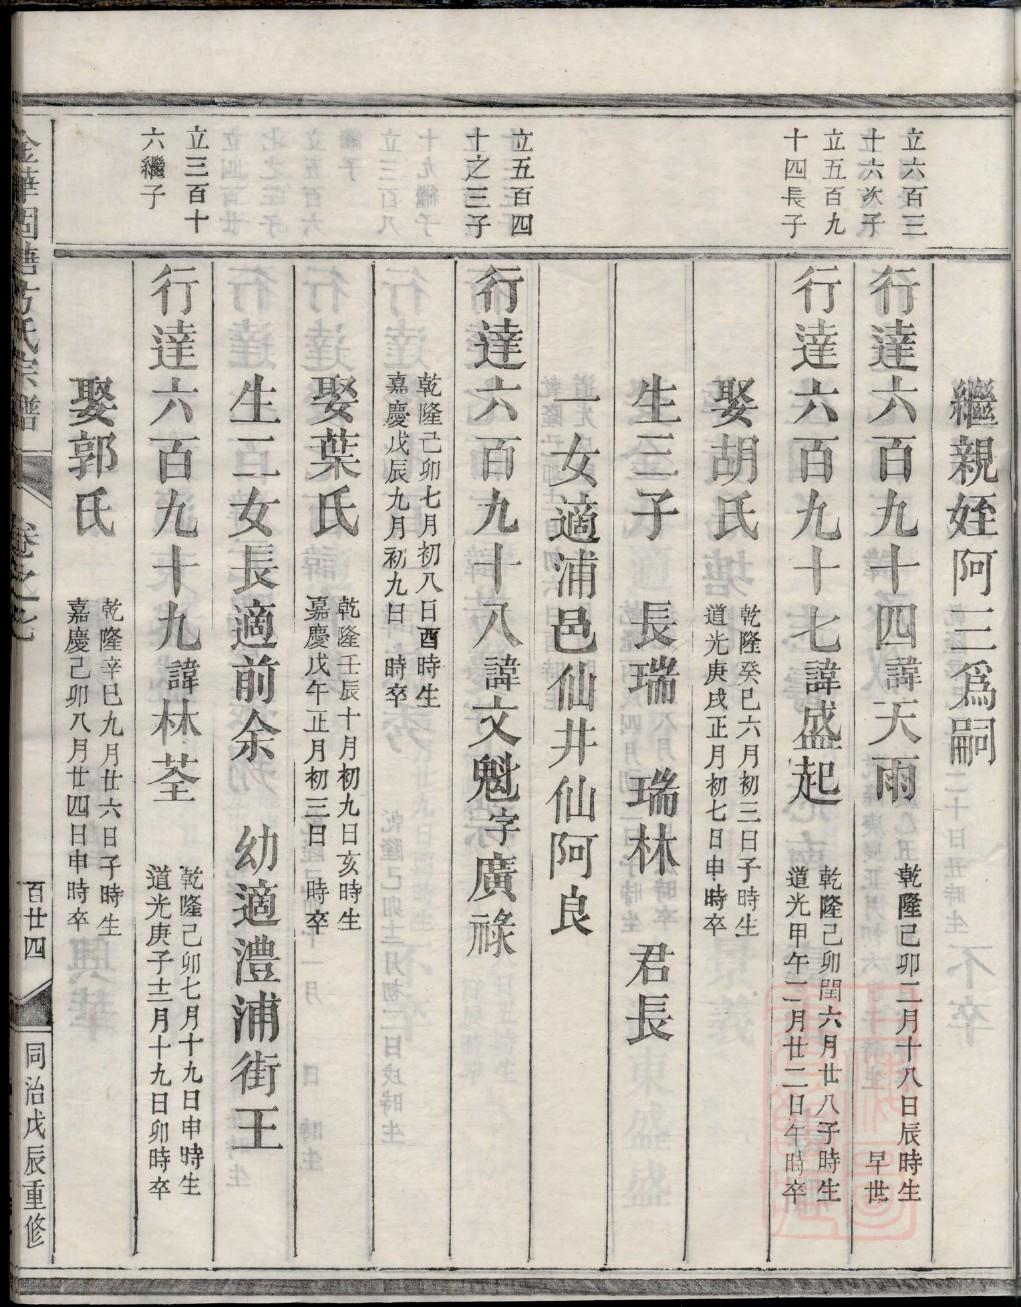 繼親姪阿三爲嗣
立六百三
十六次子
行達六百九十四諱天雨
乾隆己卯三月十八日辰時生
早世
立五百九
十四長子
行達六百九十七諱盛起
乾隆己卯閏六月廿八子時生
道光甲午二月廿二日午時卒
娶胡氏
乾隆癸巳六月初三日子時生
道光庚戌正月初七日申時卒
生三子 長瑞 瑞林 君長
一女適浦邑仙井仙阿良
立五百四
十之三子
行達六百九十八諱文魁字廣祿
乾隆己卯七月初八日酉時生
嘉慶戊辰九月初九日 時卒
娶葉氏
乾隆壬辰十月初九日亥時生
嘉慶戊午正月初三日 時卒
生二女長適前余 幼適澧浦街王
立三百十
六繼子
行達六百九十九諱林荃
乾隆己卯七月十九日申時生
道光庚子十二月十九日卯時卒
娶郭氏
乾隆辛巳九月廿六日子時生
嘉慶己卯八月廿四日申時卒
卷之七
百廿四
同治戊辰重修